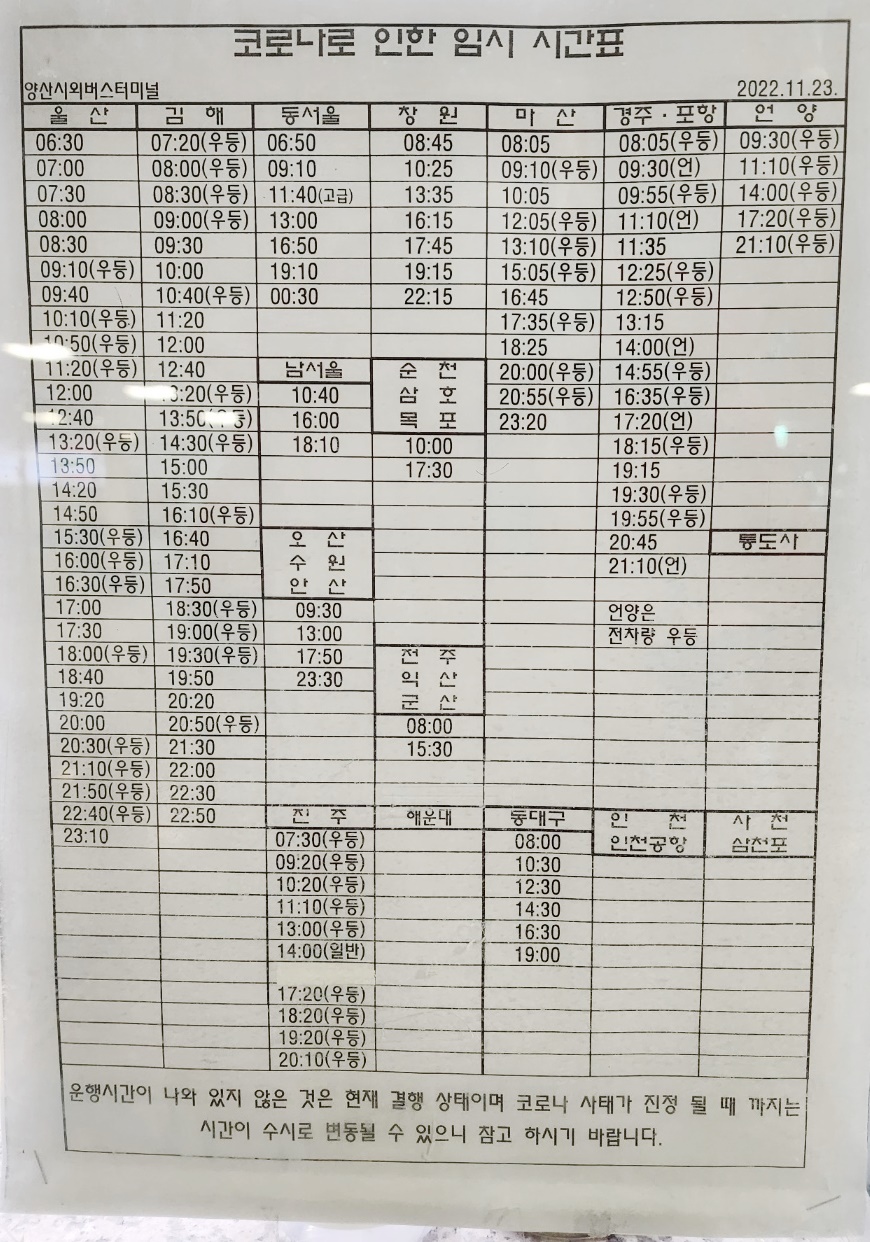 코로나로 인한 임시 시간표
양산시외버스터미널 2022.11.23.
울 산 김 해 동서울 창 원 마 산 경주·포항 언 양
06:30 07:20(우등) 06:50 08:45 08:05 08:05(우등) 09:30(우등)
07:00 08:00(우등) 09:10 10:25 09:10(우등) 09:30(언) 11:10(우등)
07:30 08:30(우등) 11:40(고급) 13:35 10:05 09:55(우등) 14:00(우등)
08:00 09:00(우등) 13:00 16:15 12:05(우등) 11:10(언) 17:20(우등)
08:30 09:30 16:50 17:45 13:10(우등) 11:35 21:10(우등)
09:10(우등) 10:00 19:10 19:15 15:05(우등) 12:25(우등)
09:40 10:40(우등) 00:30 22:15 16:45 12:50(우등)
10:10(우등) 11:20 17:35(우등) 13:15
10:50(우등) 12:00 18:25 14:00(언)
11:20(우등) 12:40 남서울 순 천 20:00(우등) 14:55(우등)
12:00 13:20(우등) 10:40 삼 호 20:55(우등) 16:35(우등)
12:40 13:50(우등) 16:00 목 포 23:20 17:20(언)
13:20(우등) 14:30(우등) 18:10 10:00 18:15(우등)
13:50 15:00 17:30 19:15
14:20 15:30 19:30(우등)
14:50 16:10(우등) 19:55(우등)
15:30(우등) 16:40 오 산 20:45 통도사
16:00(우등) 17:10 수 원 21:10(언)
16:30(우등) 17:50 안 산
17:00 18:30(우등) 09:30 언양은
17:30 19:00(우등) 13:00 전차량 우등
18:00(우등) 19:30(우등) 17:50 전 주
18:40 19:50 23:30 익 산
19:20 20:20 군 산
20:00 20:50(우등) 08:00
20:30(우등) 21:30 15:30
21:10(우등) 22:00
21:50(우등) 22:30
22:40(우등) 22:50 진 주 해운대 동대구 인 천 사 천
23:10 07:30(우등) 08:00 인천공항 삼천포
09:20(우등) 10:30
10:20(우등) 12:30
11:10(우등) 14:30
13:00(우등) 16:30
14:00(일반) 19:00
17:20(우등)
18:20(우등)
19:20(우등)
20:10(우등)
운행시간이 나와 있지 않은 것은 현재 결행 상태이며 코로나 사태가 진정 될 때 까지는
시간이 수시로 변동될 수 있으니 참고 하시기 바랍니다.